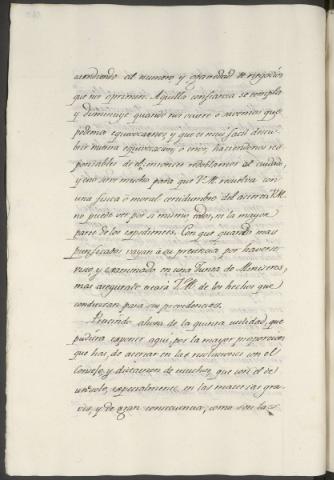 atendiendo al numero y gravedad de negocios
que nos oprimen. Aquella confianza se templa
y disminuye quando nos ocurre o avisan que
podemos equivocarnos, y que es mas facil descu-
brir nuestra equivocacion, o error, haciendonos res-
ponsables de el; entonces redoblamos el cuidado,
y esto sirve mucho para que V.M. resuelva con
una fisica o moral certidumbre del acierto. V.M.
no puede ver por si mismo todos, ni la mayor
parte de los expedientes. Con que quando mas
purificados vayan a su presencia por haverse
visto y examinado en una Junta de Ministros,
mas asegurado estará V.M. de los hechos que
conduzcan para sus providencias.
Prescindo ahora de la quinta utilidad, que
pudiera exponer aqui, por la mayor proporcion
que hai, de acertar en las resoluciones con el
Consejo y dictamen de muchos, que con el de
uno solo, especialmente en las materias gra-
ves, y de gran consecuencia, como son las